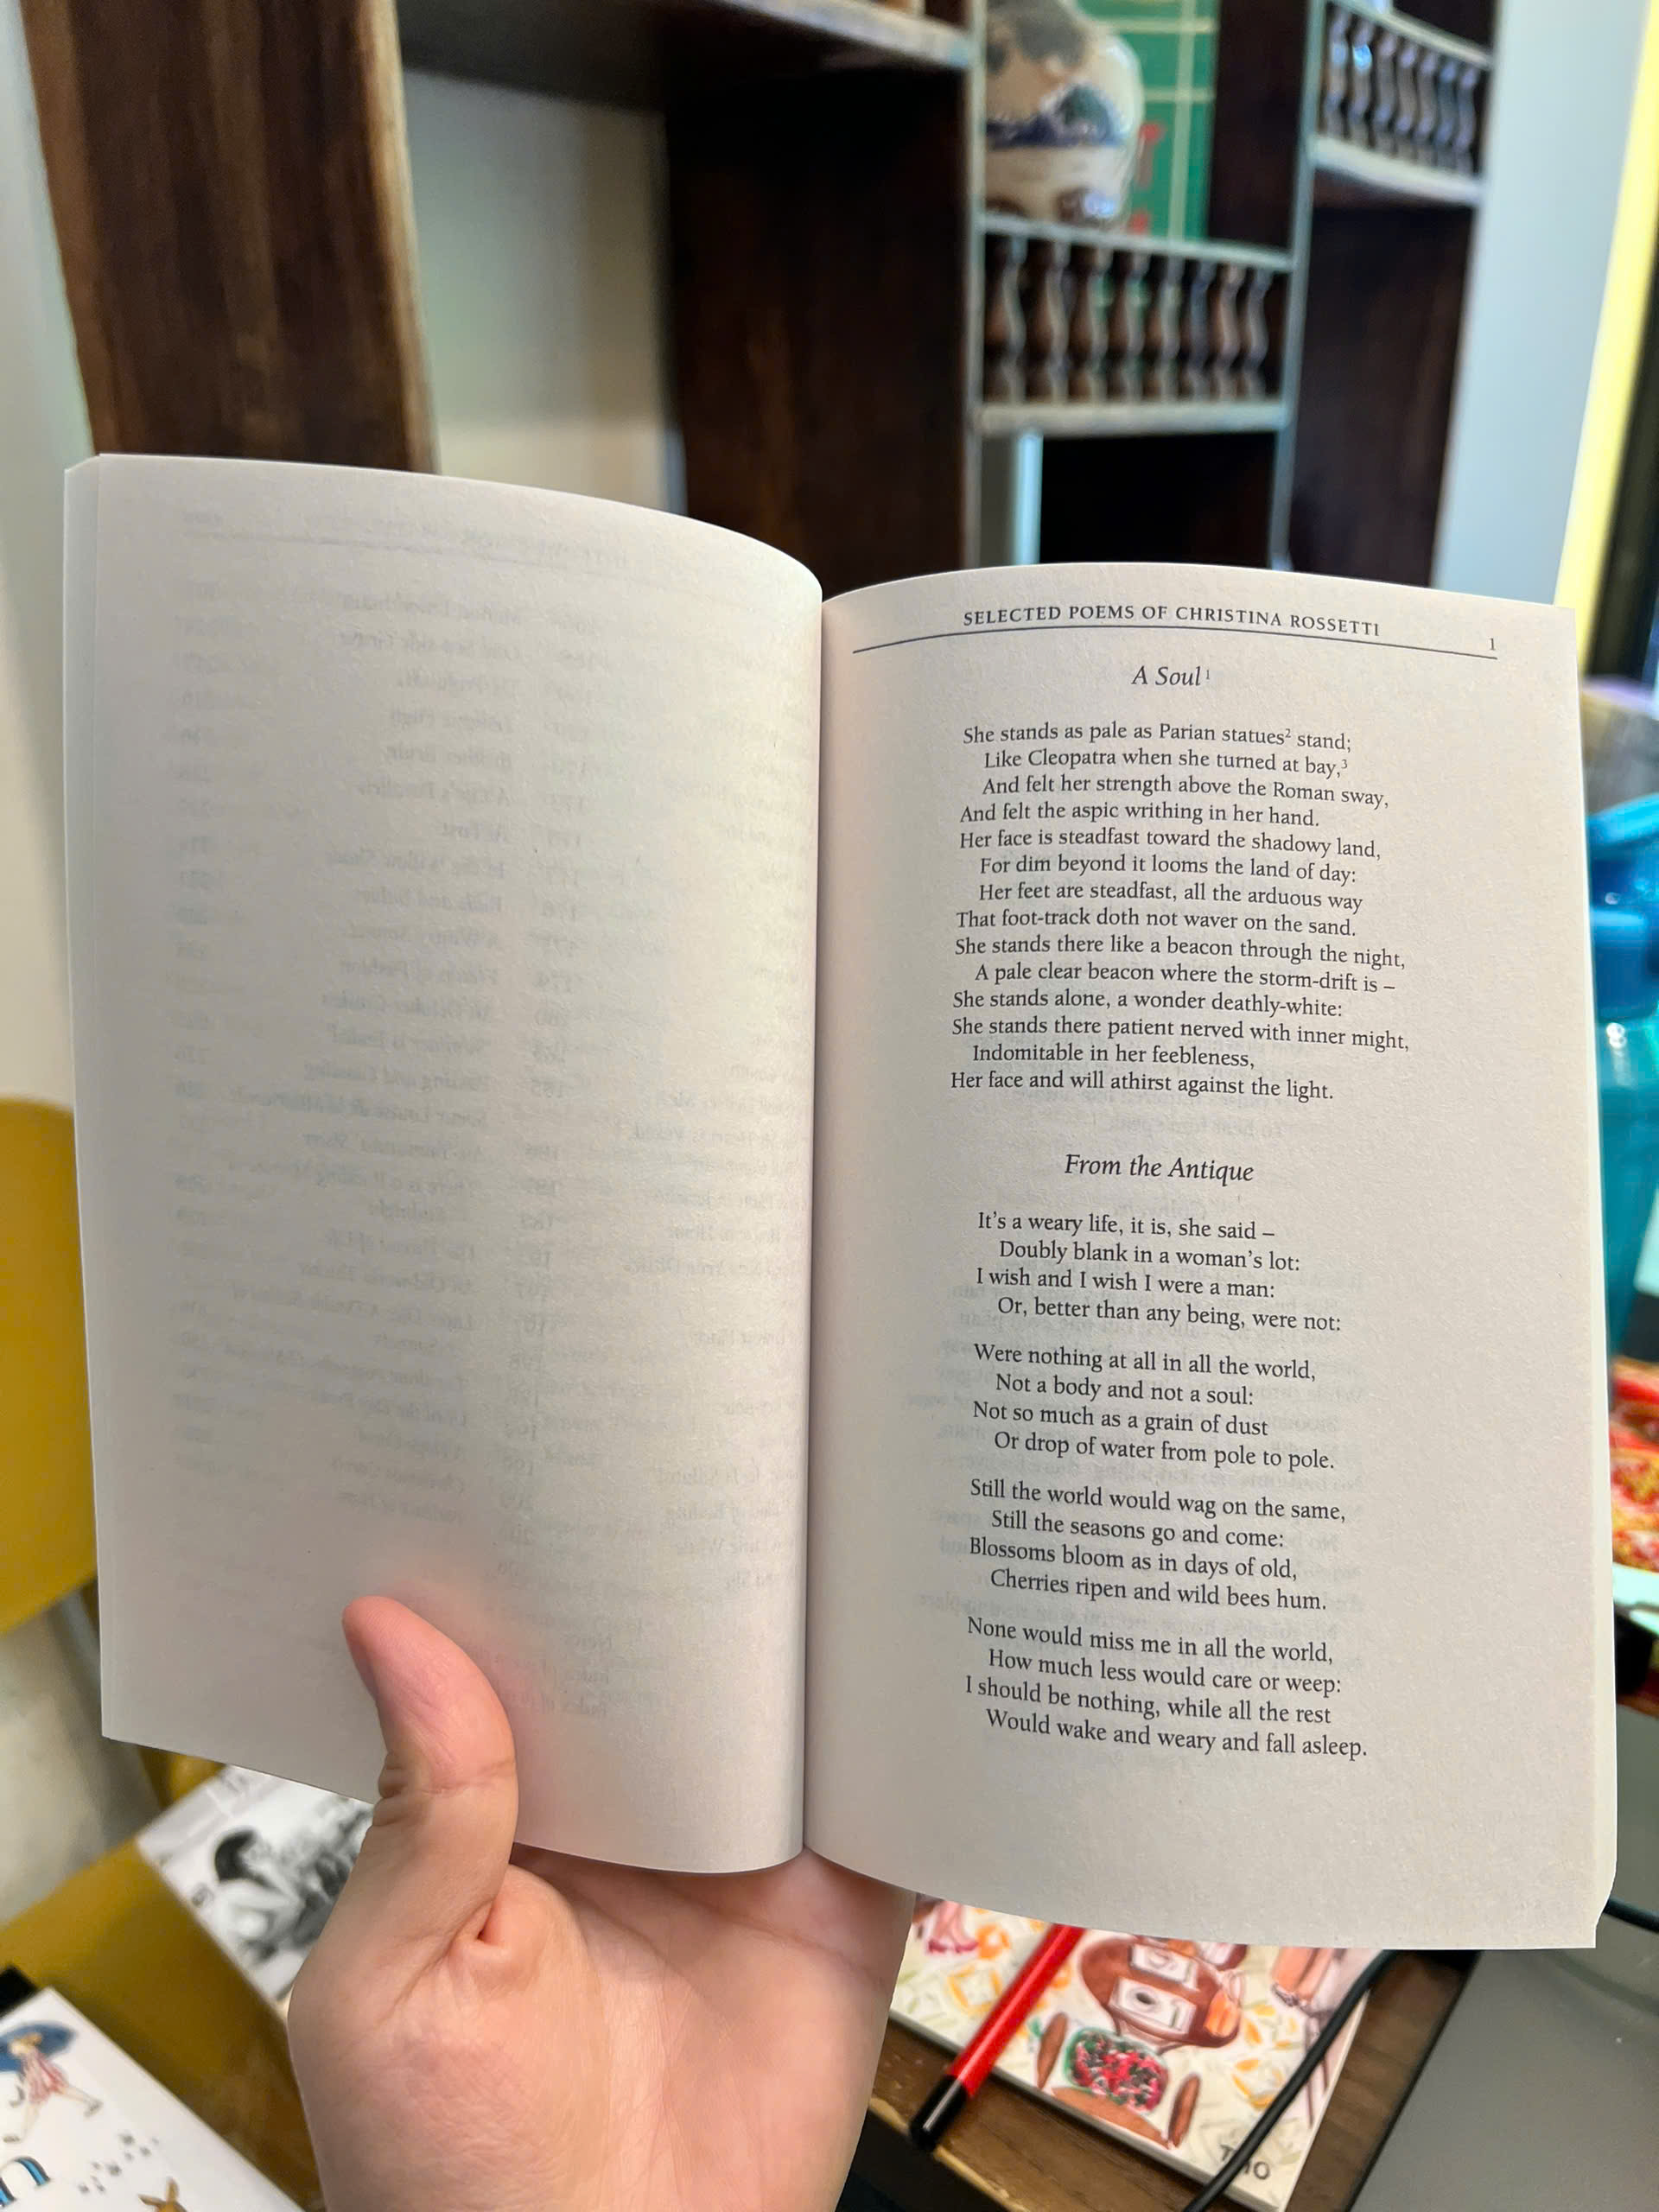 SELECTED POEMS OF CHRISTINA ROSSETTI 1
A Soul¹
She stands as pale as Parian statues² stand;
Like Cleopatra when she turned at bay,³
And felt her strength above the Roman sway,
And felt the aspic writhing in her hand.
Her face is steadfast toward the shadowy land,
For dim beyond it looms the land of day:
Her feet are steadfast, all the arduous way
That foot-track doth not waver on the sand.
She stands there like a beacon through the night,
A pale clear beacon where the storm-drift is –
She stands alone, a wonder deathly-white:
She stands there patient nerved with inner might,
Indomitable in her feebleness,
Her face and will athirst against the light.
From the Antique
It's a weary life, it is, she said –
Doubly blank in a woman's lot:
I wish and I wish I were a man:
Or, better than any being, were not:
Were nothing at all in all the world,
Not a body and not a soul:
Not so much as a grain of dust
Or drop of water from pole to pole.
Still the world would wag on the same,
Still the seasons go and come:
Blossoms bloom as in days of old,
Cherries ripen and wild bees hum.
None would miss me in all the world,
How much less would care or weep:
I should be nothing, while all the rest
Would wake and weary and fall asleep.